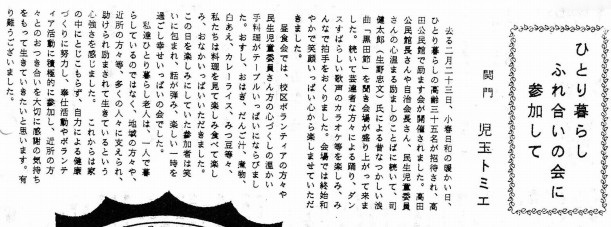 ひとり暮らし
ふれ合いの会に
参加して
関門　児玉トミエ
去る二月二十三日、小春日旬の暖かい日、
ひとり暮らしの高齢三十五名が招待され、高
田公民館で励ます会が開催されました。高田
公民館長さんや自治会長さん、民生児童委員
さんの心温まる励ましのことばに続いて、司
健太郎（生野忠文）氏による昔なつかしい浪
曲「黒田節」を聞き会場が盛り上がって来ま
した。続いて芸達者な方々による踊り、ダン
スすばらしい歌声のカラオケ等を楽しみ、み
んなで拍手をおくりました。会場では終始和
やかで笑顔いっぱい心から楽しませていただ
きました。
昼食会では、校区ボランティアの方々や
民生児童委員さん方の心づくしの温かい
手料理がテーブルいっぱいにならびまし
た。おすし、おはぎ、だんご汁、煮物、
白あえ、カレーライス、みつ豆等々、
私たちは料理を見て楽しみ食べて楽し
み、おなかいっぱいいただきました。
この日を楽しみにしていた参加者は笑
いに包まれ、話が弾み、楽しい一時を
過ごし幸せいっぱいの会でした。
私達ひとり暮らし老人は、一人で暮
らしているのではなく、地域の方々や、
近所の方々等、多くの人々に支えられ、
助けられ励まされて生きているという
心強さを感じました。これからは家
の中にとじこもらず、自力による健康
づくりに努力し、奉仕活動やボランテ
ィア活動に積極的に参加し、近所の方
々とのおつき合いを大切に感謝の気持ち
をもって生きていきたいと思います。有
り難うございました。